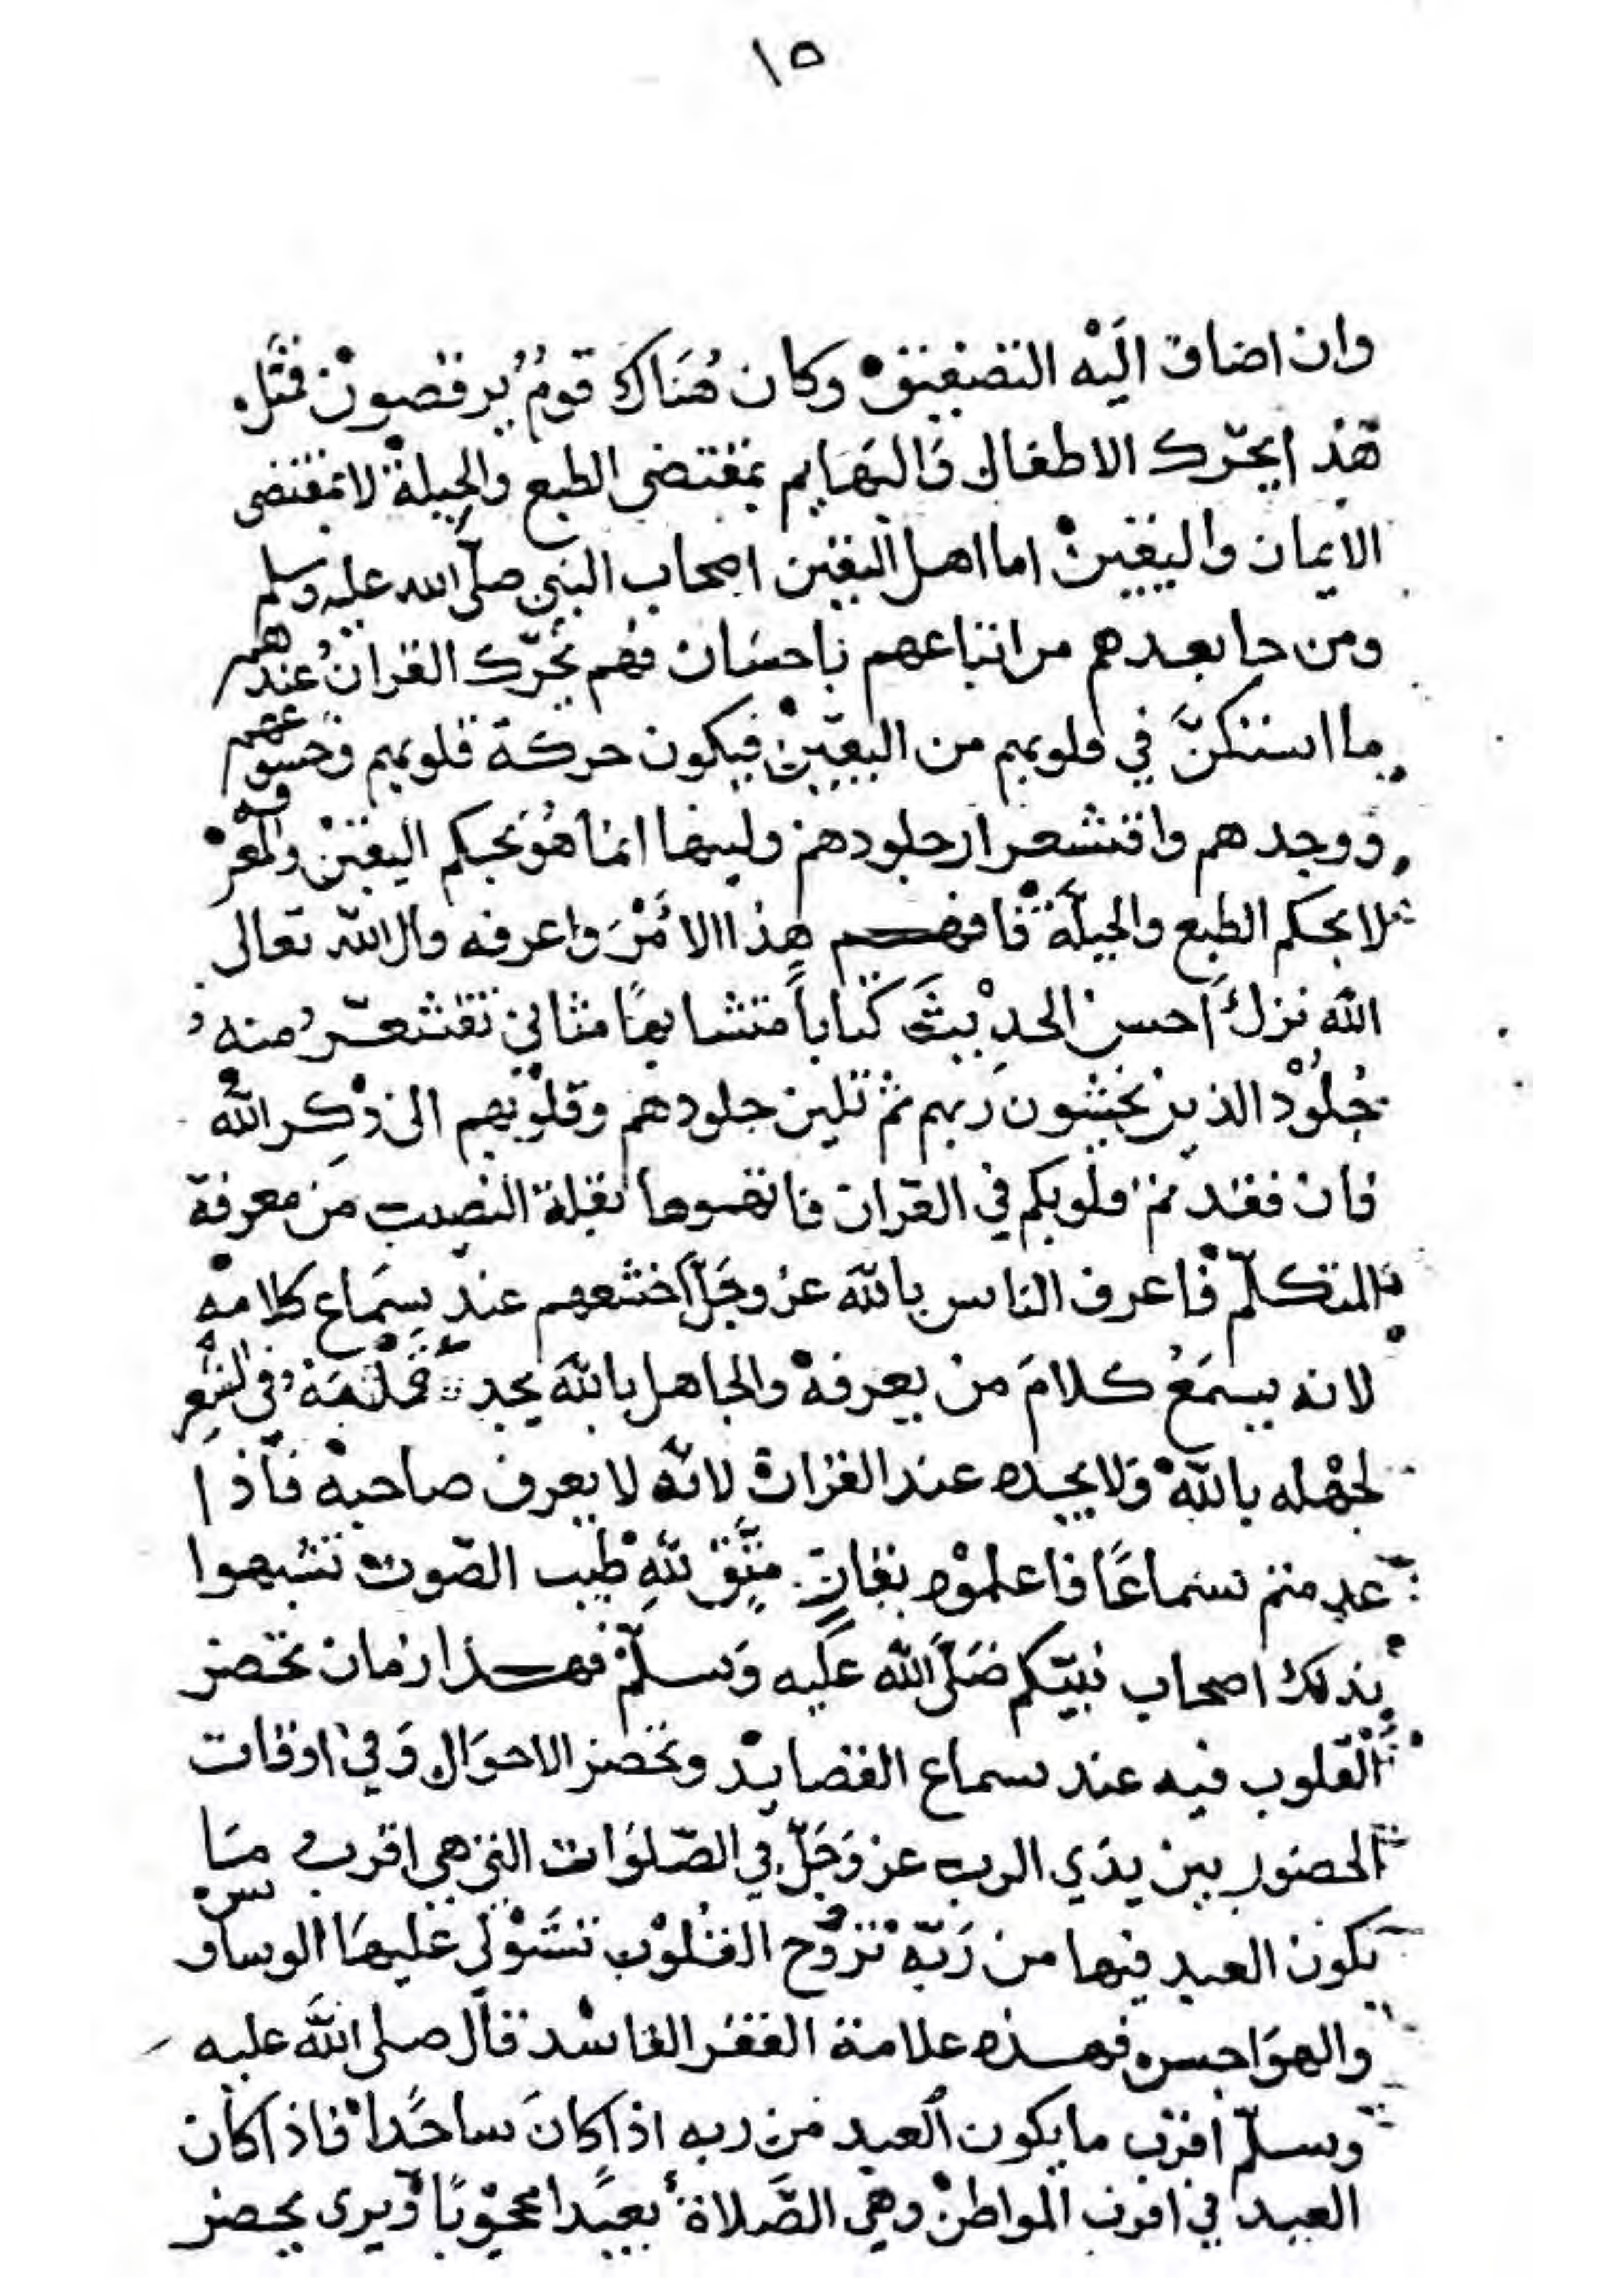 ١٥
وان اضاف اليه التصفيق وكان هناك قوم يرقصون فمثل
هذا يحرك الاطفال والبهايم بمقتضى الطبع والجبلة لا بمقتضى
الايمان واليقين اما اهل اليقين اصحاب النبي صلى الله عليه وسلم
ومن جا بعدهم من اتباعهم باحسان فهم يحرك القران عندهم
ما استكن في قلوبهم من اليقين فيكون حركة قلوبهم وخشوعهم
ووجدهم واقشعرار جلودهم ولينها انما هو بحكم اليقين والمعرفه
لا بحكم الطبع والجبلة فافهم هذا الامر واعرفه قال الله تعالى
الله نزل احسن الحديث كتاباً متشابهاً مثاني تقشعر منه
جلود الذين يخشون ربهم ثم تلين جلودهم وقلوبهم الى ذكر الله
فان فقدتم قلوبكم في القران فاتهموها بقلة النصيب من معرفة
المتكلم فاعرف الناس بالله عز وجل اخشعهم عند سماع كلامه
لانه يسمع كلام من يعرفه والجاهل بالله يجد قلبه في الشعر
لجهله بالله ولا يجده عند القراة لانه لا يعرف صاحبه فاذا
عدمتم سماعاً فاعلموه بقارٍ متق لله طيب الصوت تشبهوا
بذلك اصحاب نبيكم صلى الله عليه وسلم فهذا زمان تحضر
القلوب فيه عند سماع القصايد وتحضر الاحوال وفي اوقات
الحضور بين يدي الرب عز وجل في الصلوات التي هي اقرب ما
يكون العبد فيها من ربه تروح القلوب تستولي عليها الوساوس
والهواجس فهذه علامة الفقر الفاسد قال صلى الله عليه
وسلم اقرب ما يكون العبد من ربه اذا كان ساجدا فاذا كان
العبد في اقرب المواطن وهي الصلاة بعيدا محجوبا ويرى يحضر